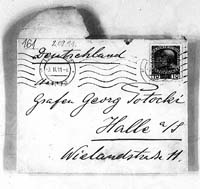 161
Deutschland
Grafen Georg Potocki
Halle a/S
Wielandstraße 11
10